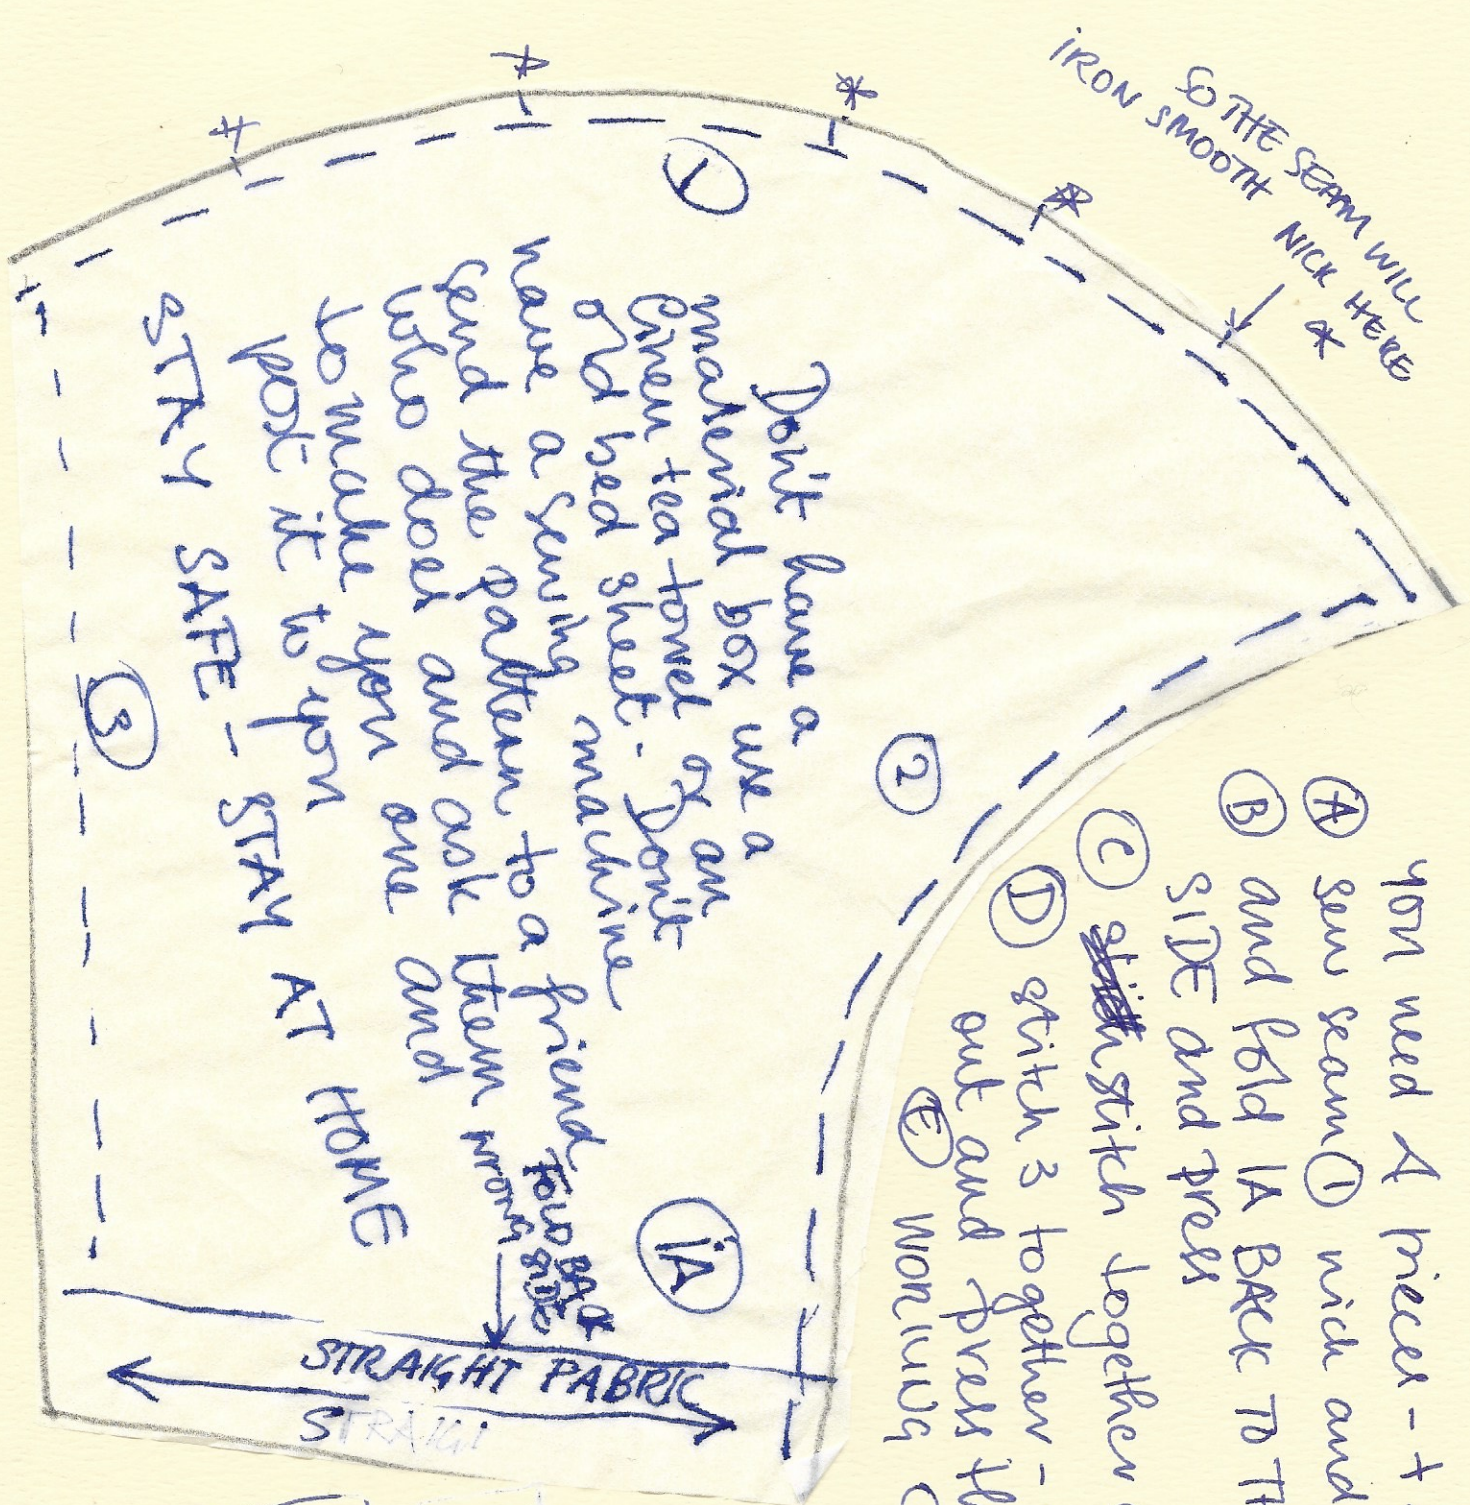 SO THE SEAM WILL
IRON SMOOTH NICK HERE
*
1
Don't have a
material box use a
linen tea-towel or an
old bed sheet. Don't
have a sewing machine
send the pattern to a friend
who does and ask them
to make you one and
post it to you
STAY SAFE - STAY AT HOME
2
3
1A
FOLD BACK
WRONG SIDE
STRAIGHT FABRIC
STRAIG
you need 4 pieces -
A sew seam 1 nick and
B and fold 1A BACK TO
SIDE and press
C stitch together
D stitch 3 together -
out and press
E WORKING